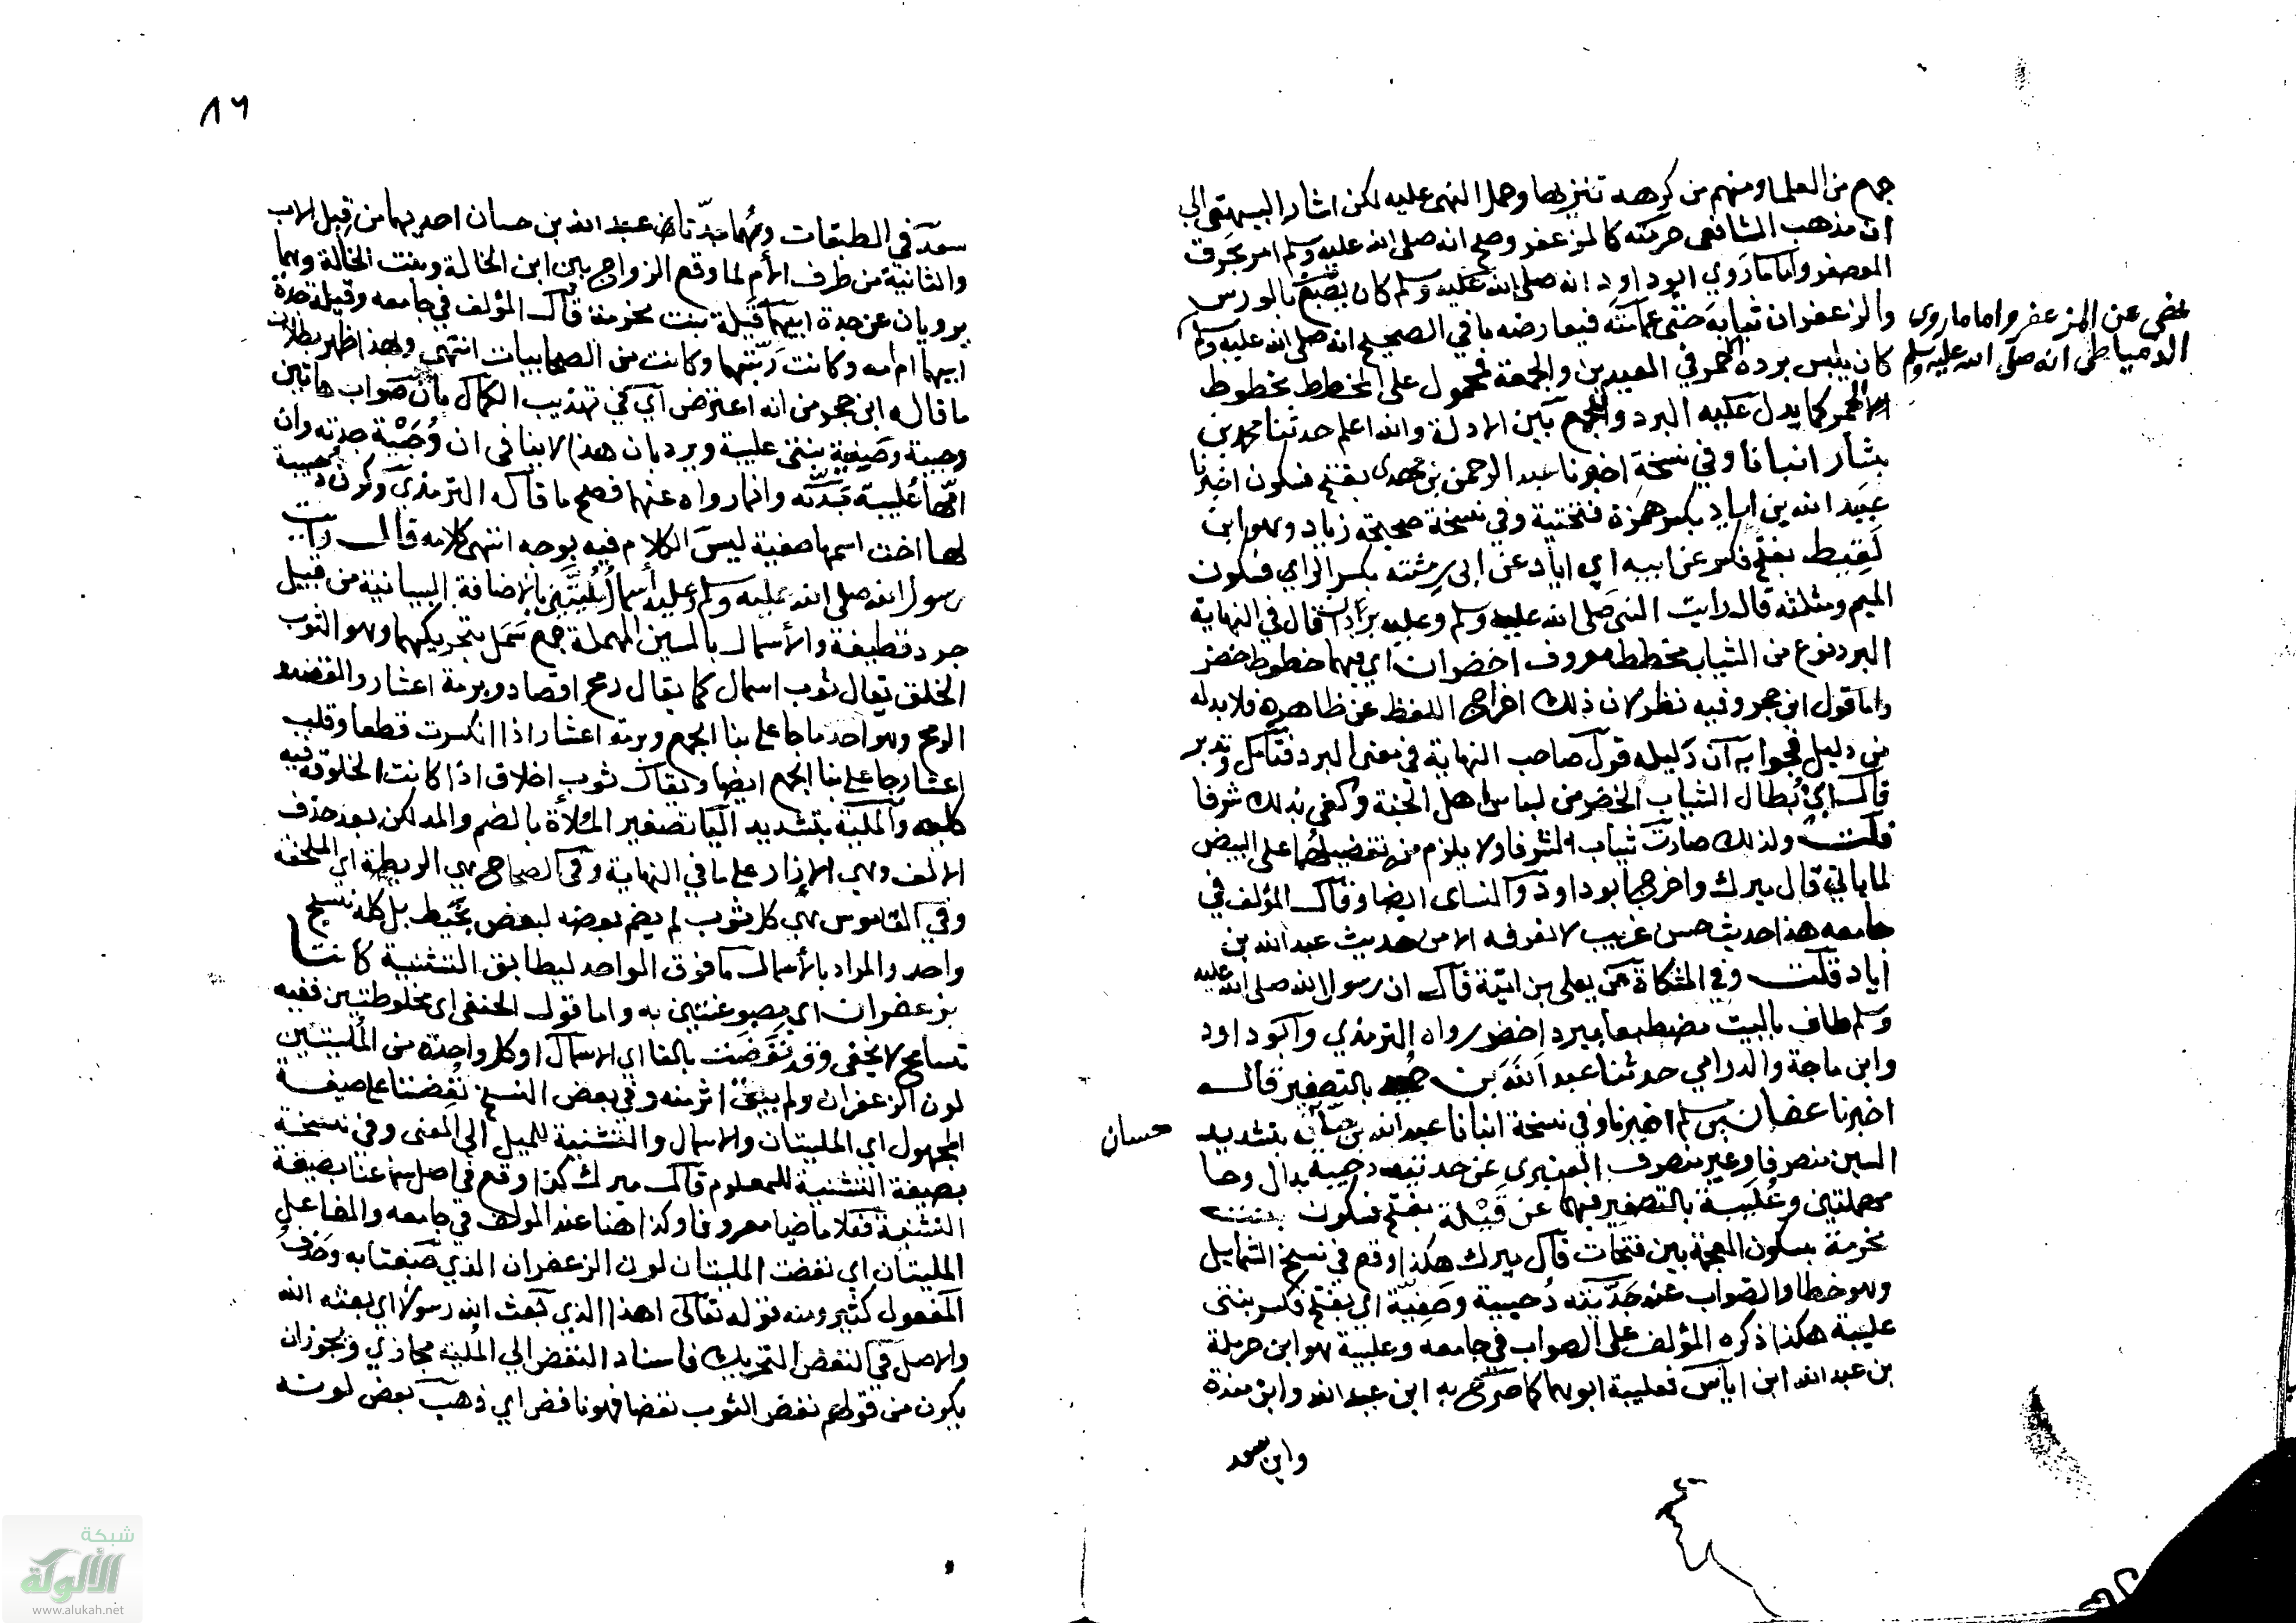 جمع من العلما ومنهم من كرهه تنزيها وحمل النهي عليه لكن اشار البيهقي الى
ان مذهب الشافعي حرمته كالمزعفر وصح انه صلى الله عليه وسلم امر بحرق
المعصفر واما ما روي ابو داود انه صلى الله عليه وسلم كان يصبغ بالورس
والزعفران ثيابه حتى عمامته فيعارضه ما في الصحيح انه صلى الله عليه وسلم
نهى عن المزعفر واما ما روى
الدمياطي انه صلى الله عليه وسلم
كان يلبس برده الاحمر في العيدين والجمعة فمحمول على المخطط بخطوط
الاحمر كما يدل عليه البرد والجمع بين الادلة والله اعلم حدثنا محمد بن
بشار انبانا وفي نسخة اخبرنا عبد الرحمن بن مهدى بفتح فسكون اخبرنا
عبيد الله بن اياد بكسر همزة فتحتية وفي نسخة صحيحة زياد وهو ابن
لقيط بفتح فكسر عن ابيه اي اياد عن ابى رمثته بكسر الراي فسكون
الميم ومثلثه قال رايت النبي صلى الله عليه وسلم وعليه بردان قال في النهاية
البرد نوع من الثياب مخطط معروف اخضران اي فيهما خطوط خضر
واما قول ابن حجر وفيه نظر لان ذلك اخراج اللفظ عن ظاهره فلا بد له
من دليل فجوابه ان دليله قول صاحب النهاية في معنى البرد فتامل وتدبر
قال ابن بطال الثياب الخضر من لباس اهل الجنة وكفى بذلك شرفا
قلت ولذلك صارت ثياب الشرفا ولا يلزم منه تفضيلها على البيض
لما ياتي قال ميرك واخرجه ابو داود والنساى ايضا وقال المؤلف في
جامعه هذا حديث حسن غريب لا نعرفه الا من حديث عبد الله بن
اياد قلت وفي المشكاة عن يعلى بن امية قال ان رسول الله صلى الله عليه
وسلم طاف بالبيت مضطبعا ببرد اخضر رواه الترمذي وابو داود
وابن ماجة والدرامي حدثنا عبد الله بن حميد بالتصغير قال
اخبرنا عفان بن مسلم اخبرنا وفي نسخة انبانا عبد الله بن حسان بتشديد
حسان
السين منصرفا وغير منصرف العنبرى عن جدتيه دحيبة بدال وحا
مهملتين وعليبة بالتصغير فيهما عن قيلة بفتح فسكون بنت
مخرمة بسكون المعجمة بين فتحات قال ميرك هكذا وقع في نسخ الشمايل
وهو خطا والصواب عن جدتيه دحيبة وصفية اي بفتح فكسر بنتى
عليبة هكذا ذكره المؤلف على الصواب في جامعه وعليبة هو ابن حرملة
بن عبد الله ابن اياس فعليبة ابوهما كما صرح به ابن عبد الله وابن مندة
وابن سعد
٨٦
سعد في الطبقات وهما جدتان عبد الله بن حسان احديهما من قبل الاب
والثانية من طرف الام لما وقع الزواج بين ابن الخالة وبنت الخالة وهما
يرويان عن جدة ابيهما قيلة بنت مخرمة قال المؤلف في جامعه وقيلة جدة
ابيهما ام امه وكانت ربتهما وكانت من الصحابيات انتهى وبهذا ظهر بطلان
ما قاله ابن حجر من انه اعترض اي في تهذيب الكمال بان صواب هاتين
دحيبة وصفية بنتى عليبة ويرد بان هذا لا ينافى ان دحيبة جدته وان
امها عليبة جدته وانما رواه عنهما فصح ما قاله الترمذي وكون دحيبة
لها اخت اسمها صفية ليس الكلام فيه بوجه انتهى كلامه قالت رايت
رسول الله صلى الله عليه وسلم وعليه اسمال مليتين بالاضافة البيانية من قبيل
جرد قطيفة والاسمال بالسين المهملة جمع سمل بتحريكهما وهو الثوب
الخلق يقال ثوب اسمال كما يقال رمح اقصاد وبرمة اعشار والقصد
الرمح وهو احد ما جا على بنا الجمع وبرمة اعشار اذا انكسرت قطعا وقلب
اعشار جا على بنا الجمع ايضا ويقال ثوب اخلاق اذا كانت الخلوقة فيه
كله والملية بتشديد اليا تصغير الملاءة بالضم والمد لكن بعد حذف
الالف وهي الازار على ما في النهاية وفي الصحاح هي الريطة اي الملحفة
وفي القاموس هي كل ثوب لم يضم بعضه لبعض بخيط بل كله نسج
واحد والمراد بالاسمال ما فوق الواحد ليطابق التثنية كانتا
بزعفران اي مصبوغتين به واما قول الحنفي اى مخلوطتين ففيه
تسامح لا يخفى وقد نفضت بالفا اي الاسمال او كل واحدة من المليتين
لون الزعفران ولم يبق اثر منه وفي بعض النسخ نفضتا على صيغة
المجهول اي المليتان والاسمال والتثنية للميل الى المعنى وفي نسخة
بصيغة التثنية للمعلوم قال ميرك كذا وقع في اصل سماعنا بصيغة
التثنية فعلا ماضيا معروفا وكذا هنا عند المؤلف في جامعه والفاعل
المليتان اي نفضت المليتان لون الزعفران الذي صبغتا به وحذف
المفعول كثير ومنه قوله تعالى اهذا الذي بعث الله رسولا اي بعثه الله
والاصل في النفض التحريك فاسناد النفض الى الملية مجازي ويجوز ان
يكون من قولهم نفض الثوب نفضا فهو نافض اي ذهب بعض لونه
شبكة
الألوكة
www.alukah.net